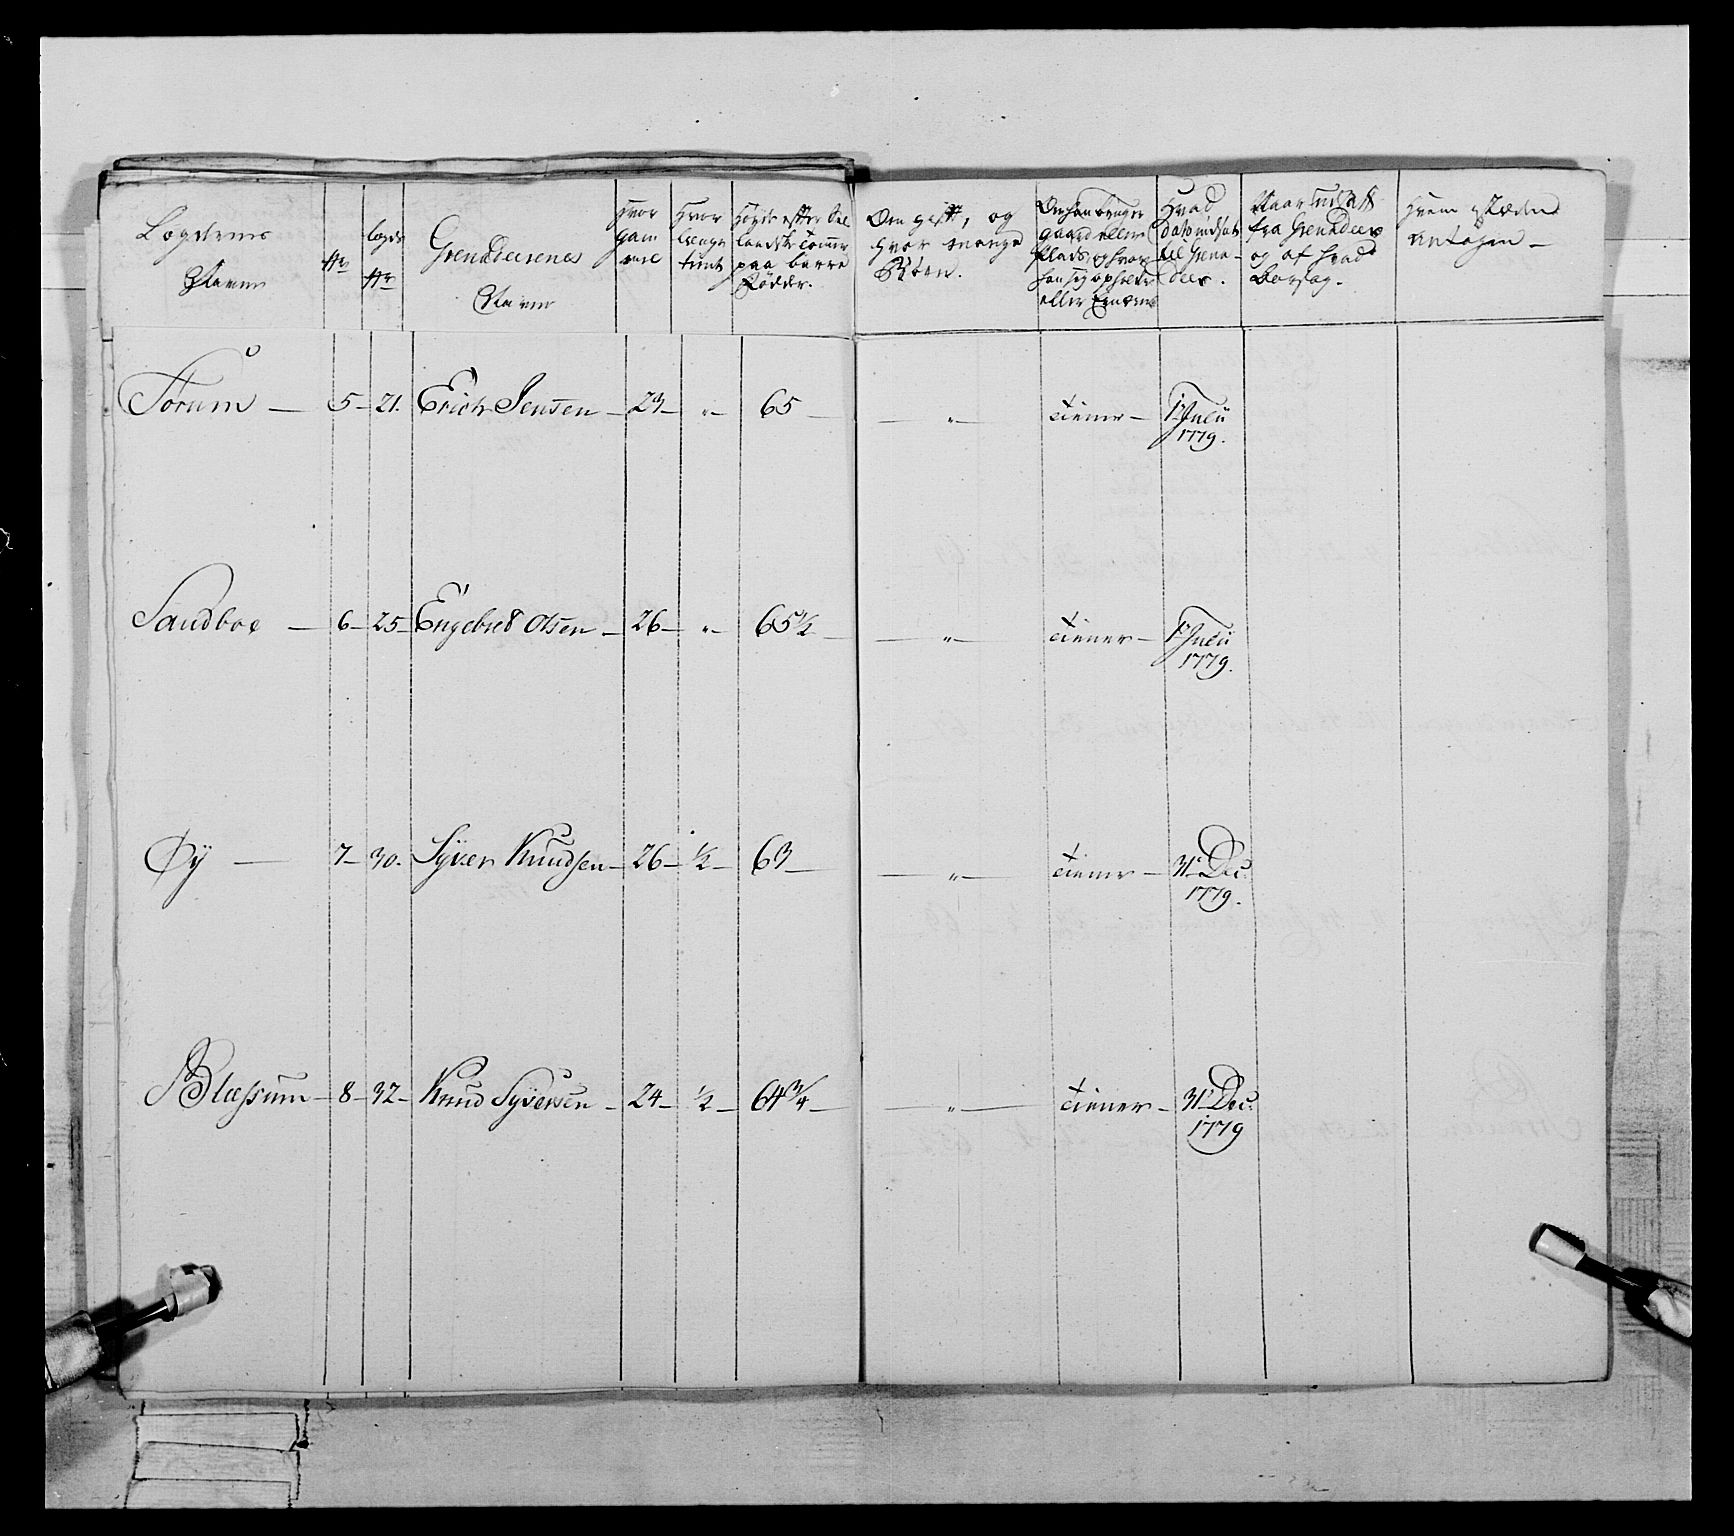 Lægdernes
Navne
No
Lægds
No
Grenadeerenes
Navne
Hvor
gam
mel
Hvor
længe
tient
Høyde efter Siæ
landske Tommer
paa barre
Fødder.
Om gift, og
hvor mange
Børn.
Om han bruger
gaard eller
plads, og hvor
han sig opholder
eller tiener
Hvad
Dato indsat
til Grena-
deer.
Naar udsatt
fra Grenadeer
og af hvad
Aarsag.
Hvem i Stæden
antagen -
Forum — 5 - 21. Erich Jensen - 23 - „ - 65 — — „ — tiener - 1t Julii
1779.
Sandboe — 6 - 25 - Engebret Olsen - 26 - „ - 65½ — — „ — tiener - 1t Julii
1779.
Øÿ — 7 - 30. Syver Knudsen - 26 - ½ - 63 — — „ — tiener - 31t Dec.
1779.
Blessum - 8 - 32 - Knud Syversen - 24 - ½ - 64¾ — — „ — tiener - 31t Dec.
1779